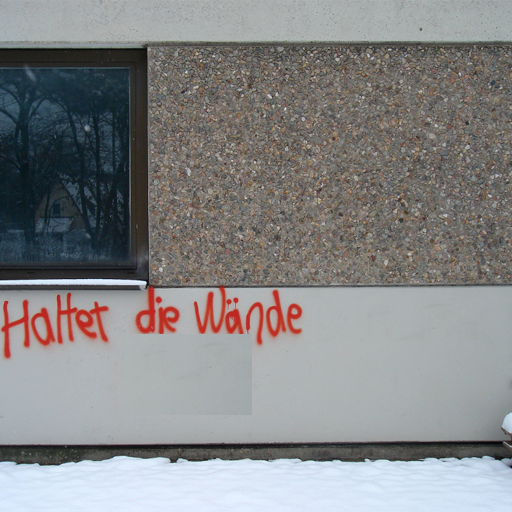 Haltet die Wände